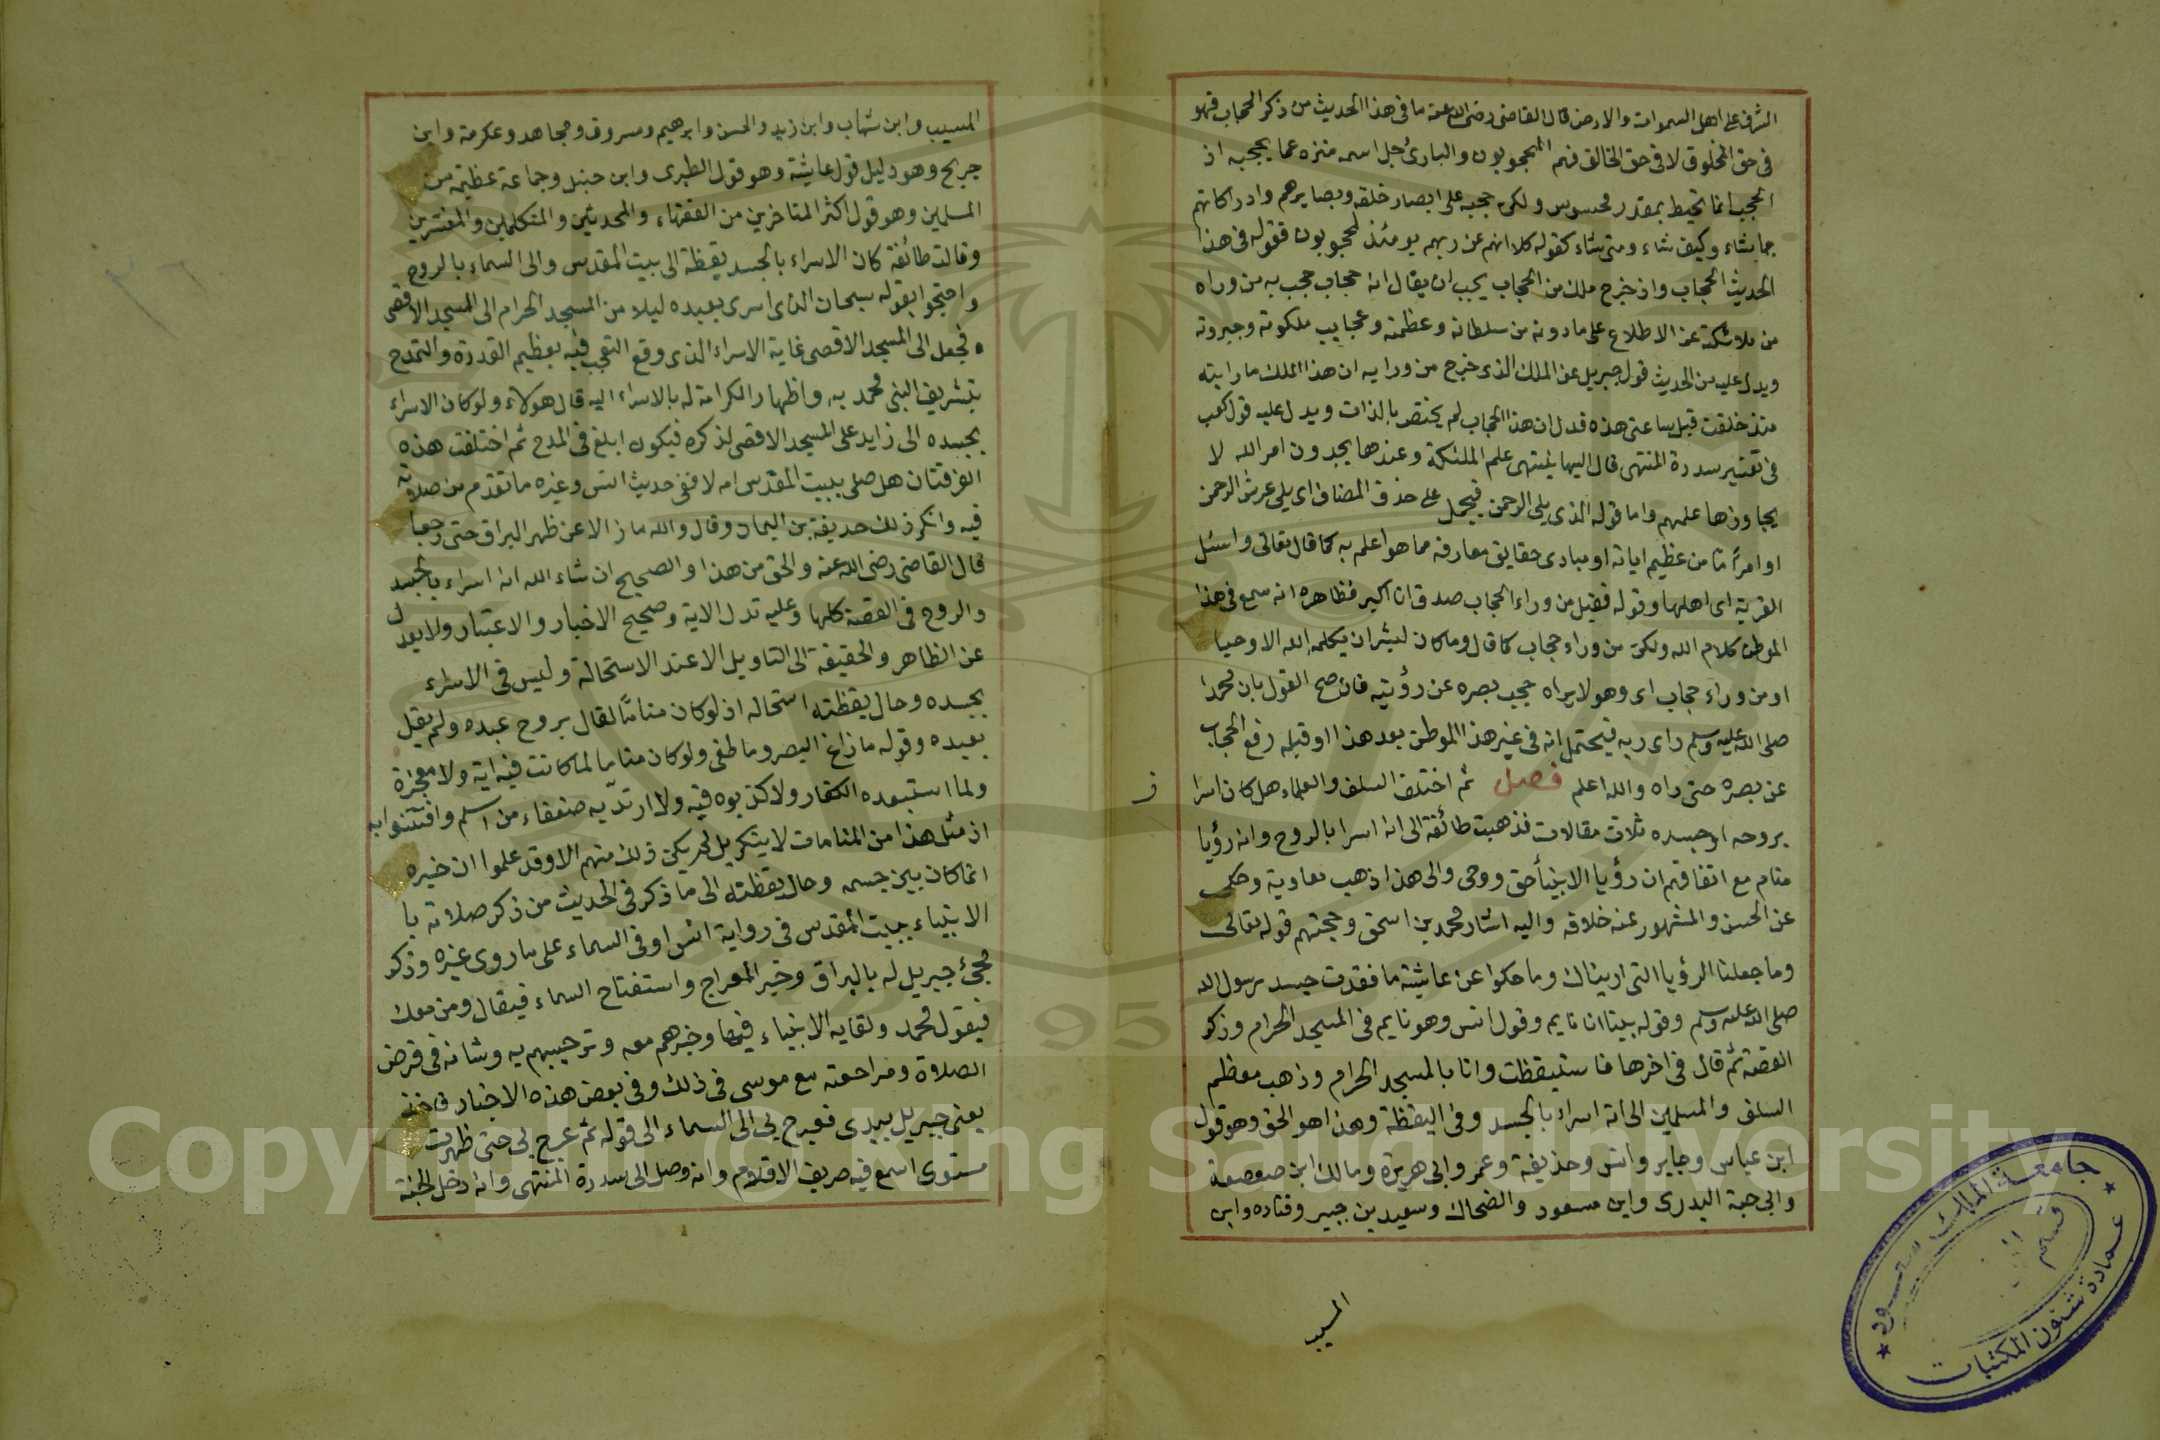 الشرف على اهل السموات والارض قال القاضى رضى الله عنه ما فى هذا الحديث من ذكر الحجاب فهو
فى حق المخلوق لا فى حق الخالق فهم المحجوبون والبارئ جل اسمه منزه عما يحجبه اذ
الحجب انما تحيط بمقدر محسوس ولكن حجبه على ابصار خلقه وبصايرهم وادراكاتهم
بما شاء وكيف شاء ومتى شاء كقوله كلا انهم عن ربهم يومئذ لمحجوبون فقوله فى هذا
الحديث الحجاب واذ خرج ملك من الحجاب يجب ان يقال انه حجاب حجب به من وراه
من ملائكته عن الاطلاع على ما دونه من سلطانه وعظمته وعجايب ملكوته وجبروته
ويدل عليه من الحديث قول جبريل عن الملك الذى خرج من ورايه ان هذا الملك ما رايته
منذ خلقت قبل ساعتى هذه فدل ان هذا الحجاب لم يختص بالذات ويدل عليه قول كعب
فى تفسير سدرة المنتهى قال اليها ينتهى علم الملئكة وعندها يجدون امر الله لا
يجاوزها علمهم واما قوله الذى يلى الرحمن فيحمل على حذف المضاف اى يلى عرش الرحمن
او امرًا مّا من عظيم اياته او مبادى حقايق معارفه مما هو اعلم به كما قال تعالى واسئل
القرية اى اهلها وقوله فقيل من وراء الحجاب صدق انا اكبر فظاهره انه سمع فى هذا
الموطن كلام الله ولكن من وراء حجاب كما قال وما كان لبشر ان يكلمه الله الا وحيا
او من وراء حجاب اى وهو لا يراه حجب بصره عن رؤيته فان صح القول بان محمدا
صلى الله عليه وسلم راى ربه فيحتمل انه فى غير هذا الموطن بعد هذا او قبله رفع الحجاب
عن بصره حتى راه والله اعلم فصل ثم اختلف السلف والعلماء هل كان اسرا
بروحه او جسده ثلاث مقالات فذهبت طائفة الى انه اسرا بالروح وانه رؤيا
منام مع اتفاقهم ان رؤيا الانبيأ حق ووحى والى هذا ذهب معاوية وحكى
عن الحسن والمشهور عنه خلافه واليه اشار محمد بن اسحق وحجتهم قوله تعالى
وما جعلنا الرؤيا التى اريناك وما حكوا عن عايشة ما فقدت جسد رسول الله
صلى الله عليه وسلم وقوله بينا انا نايم وقول انس وهو نايم فى المسجد الحرام وذكر
القصة ثم قال فى اخرها فاستيقظت وانا بالمسجد الحرام وذهب معظم
السلف والمسلمين الى انه اسراء بالجسد وفى اليقظة وهذا هو الحق وهو قول
ابن عباس وجابر وانس وحذيفة وعمر وابى هريرة ومالك ابن صعصعة
وابى حبة البدرى وابن مسعود والضحاك وسعيد بن جبير وقتاده وابن
المسيب
المسيب وابن شهاب وابن زيد والحسن وابرهيم ومسروق ومجاهد وعكرمة وابن
جريج وهو دليل قول عايشة وهو قول الطبرى وابن حنبل وجماعة عظيمة من
المسلمين وهو قول اكثر المتاخرين من الفقهاء والمحدثين والمتكلمين والمفسرين
وقالت طائفة كان الاسراء بالجسد يقظة الى بيت المقدس والى السماء بالروح
واحتجوا بقوله سبحان الذى اسرى بعبده ليلا من المسجد الحرام الى المسجد الاقصى
فجعل الى المسجد الاقصى غاية الاسراء الذى وقع التعجب فيه بعظيم القدرة والتمدح
بتشريف النبى محمد به واظهار الكرامة له بالاسراء اليه قال هولاء ولو كان الاسراء
بجسده الى زايد على المسجد الاقصى لذكره فيكون ابلغ فى المدح ثم اختلفت هذه
الفرقتان هل صلى ببيت المقدس ام لا ففى حديث انس وغيره ما تقدم من صلاته
فيه وانكر ذلك حذيفة بن اليمان وقال والله ما زالا عن ظهر البراق حتى رجعا
قال القاضى رضى الله عنه والحق من هذا والصحيح ان شاء الله انه اسراء بالجسد
والروح فى القصة كلها وعليه تدل الاية وصحيح الاخبار والاعتبار ولا يعدل
عن الظاهر والحقيقة الى التاويل الا عند الاستحالة وليس فى الاسراء
بجسده وحال يقظته استحاله اذ لو كان منامًا لقال بروح عبده ولم يقل
بعبده وقوله ما زاغ البصر وما طغى ولو كان مناما لما كانت فيه اية ولا معجزة
ولما استبعده الكفار ولا كذبوه فيه ولا ارتدّ به ضعفاء من اسلم وافتتنوا به
اذ مثل هذا من المنامات لا ينكر بل لم يكن ذلك منهم الا وقد علموا ان خبره
انما كان بين جسمه وحال يقظته الى ما ذكر فى الحديث من ذكر صلاته با
الانبياء ببيت المقدس فى رواية انس او فى السماء على ما روى غيره وذكر
مجئ جبريل له بالبراق وخبر المعراج واستفتاح السماء فيقال ومن معك
فيقول محمد ولقايه الانبياء فيها وخبرهم معه وترحيبهم به وشانه فى فرض
الصلاة ومراجعته مع موسى فى ذلك وفى بعض هذه الاخبار فاخذ
يعنى جبريل بيدى فعرج بى الى السماء الى قوله ثم عرج بى حتى ظهرت
مستوى اسمع فيه صريف الاقلام وانه وصل الى سدرة المنتهى وانه دخل الجنة
جامعة الملك سعود
عمادة شئون المكتبات
قسم
Copyright © King Saud University